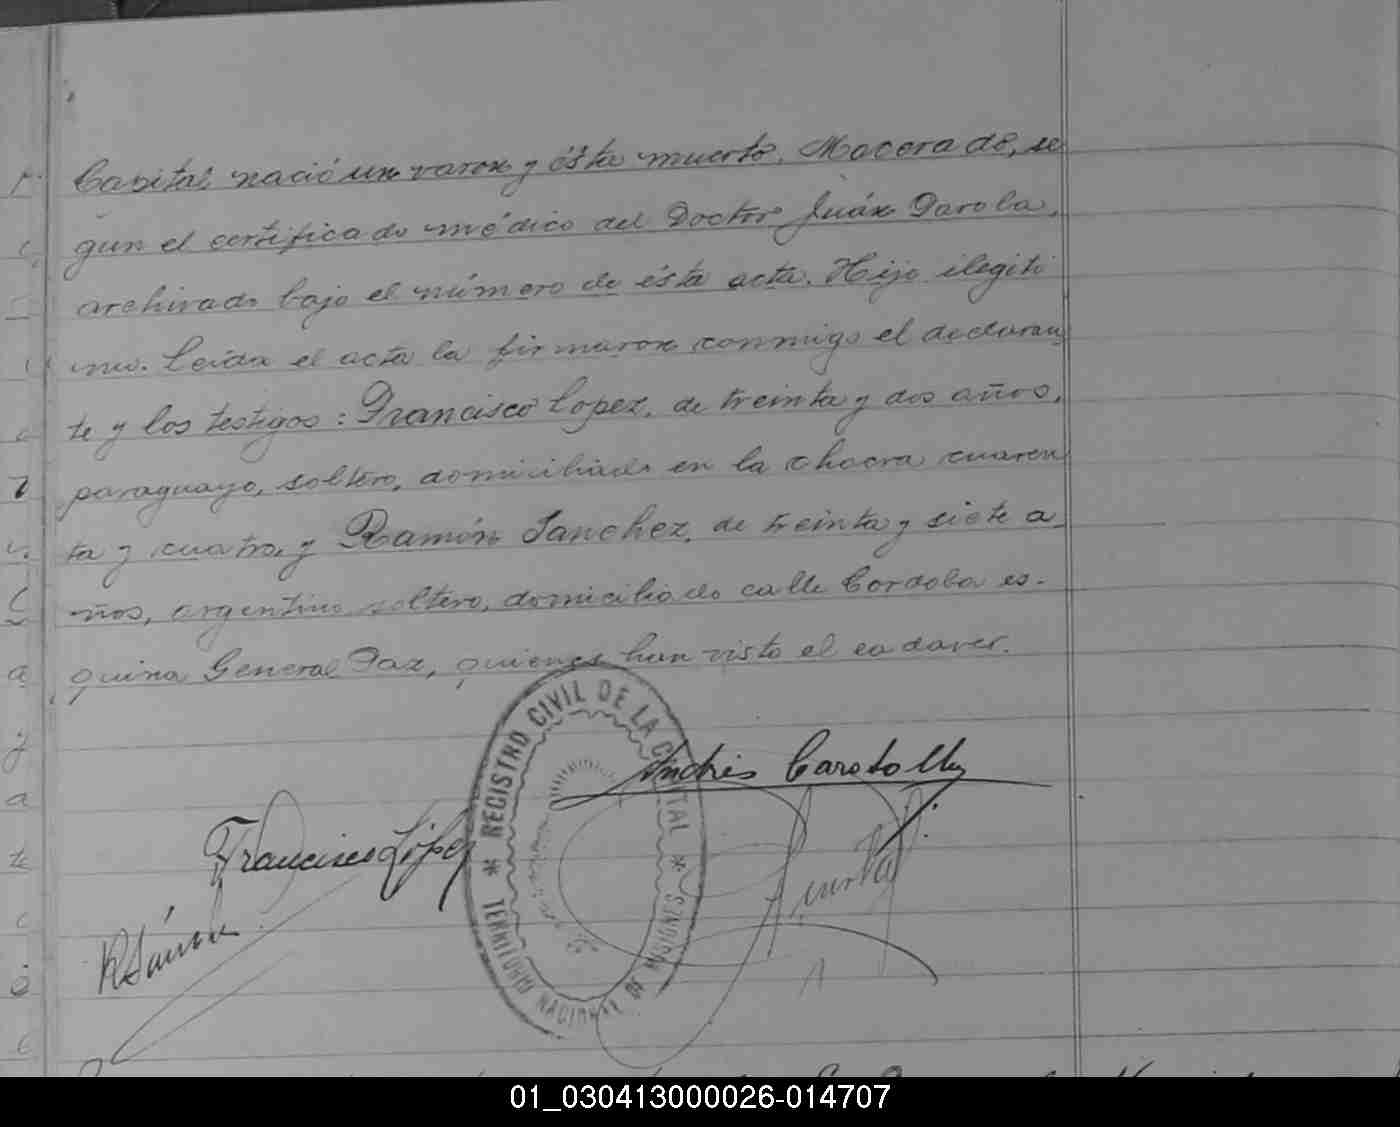 Capital nació un varon y ésta muerto. Macerado, se
gun el certificado médico del Doctor Juán Parola,
archivado bajo el número de ésta acta. Hijo ilegiti
mo. Leída el acta la firmaron conmigo el declaran
te y los testigos: Francisco Lopez, de treinta y dos años,
paraguayo, soltero, domiciliado en la chacra cuaren
ta y cuatro, y Ramón Sanchez, de treinta y siete a
ños, argentino, soltero, domiciliado calle Cordoba es-
quina General Paz, quienes han visto el cadaver.
* REGISTRO CIVIL DE LA CAPITAL *
TERRITORIO NACIONAL DE MISIONES
Andrés
Francisco López
RSánche
01_030413000026-014707